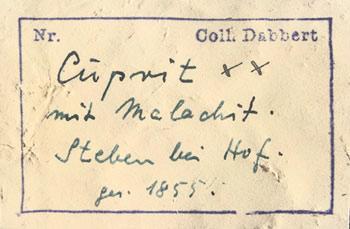 Nr. Coll. Dabbert
Cuprit xx
mit Malachit.
Steben bei Hof.
ges. 1855.